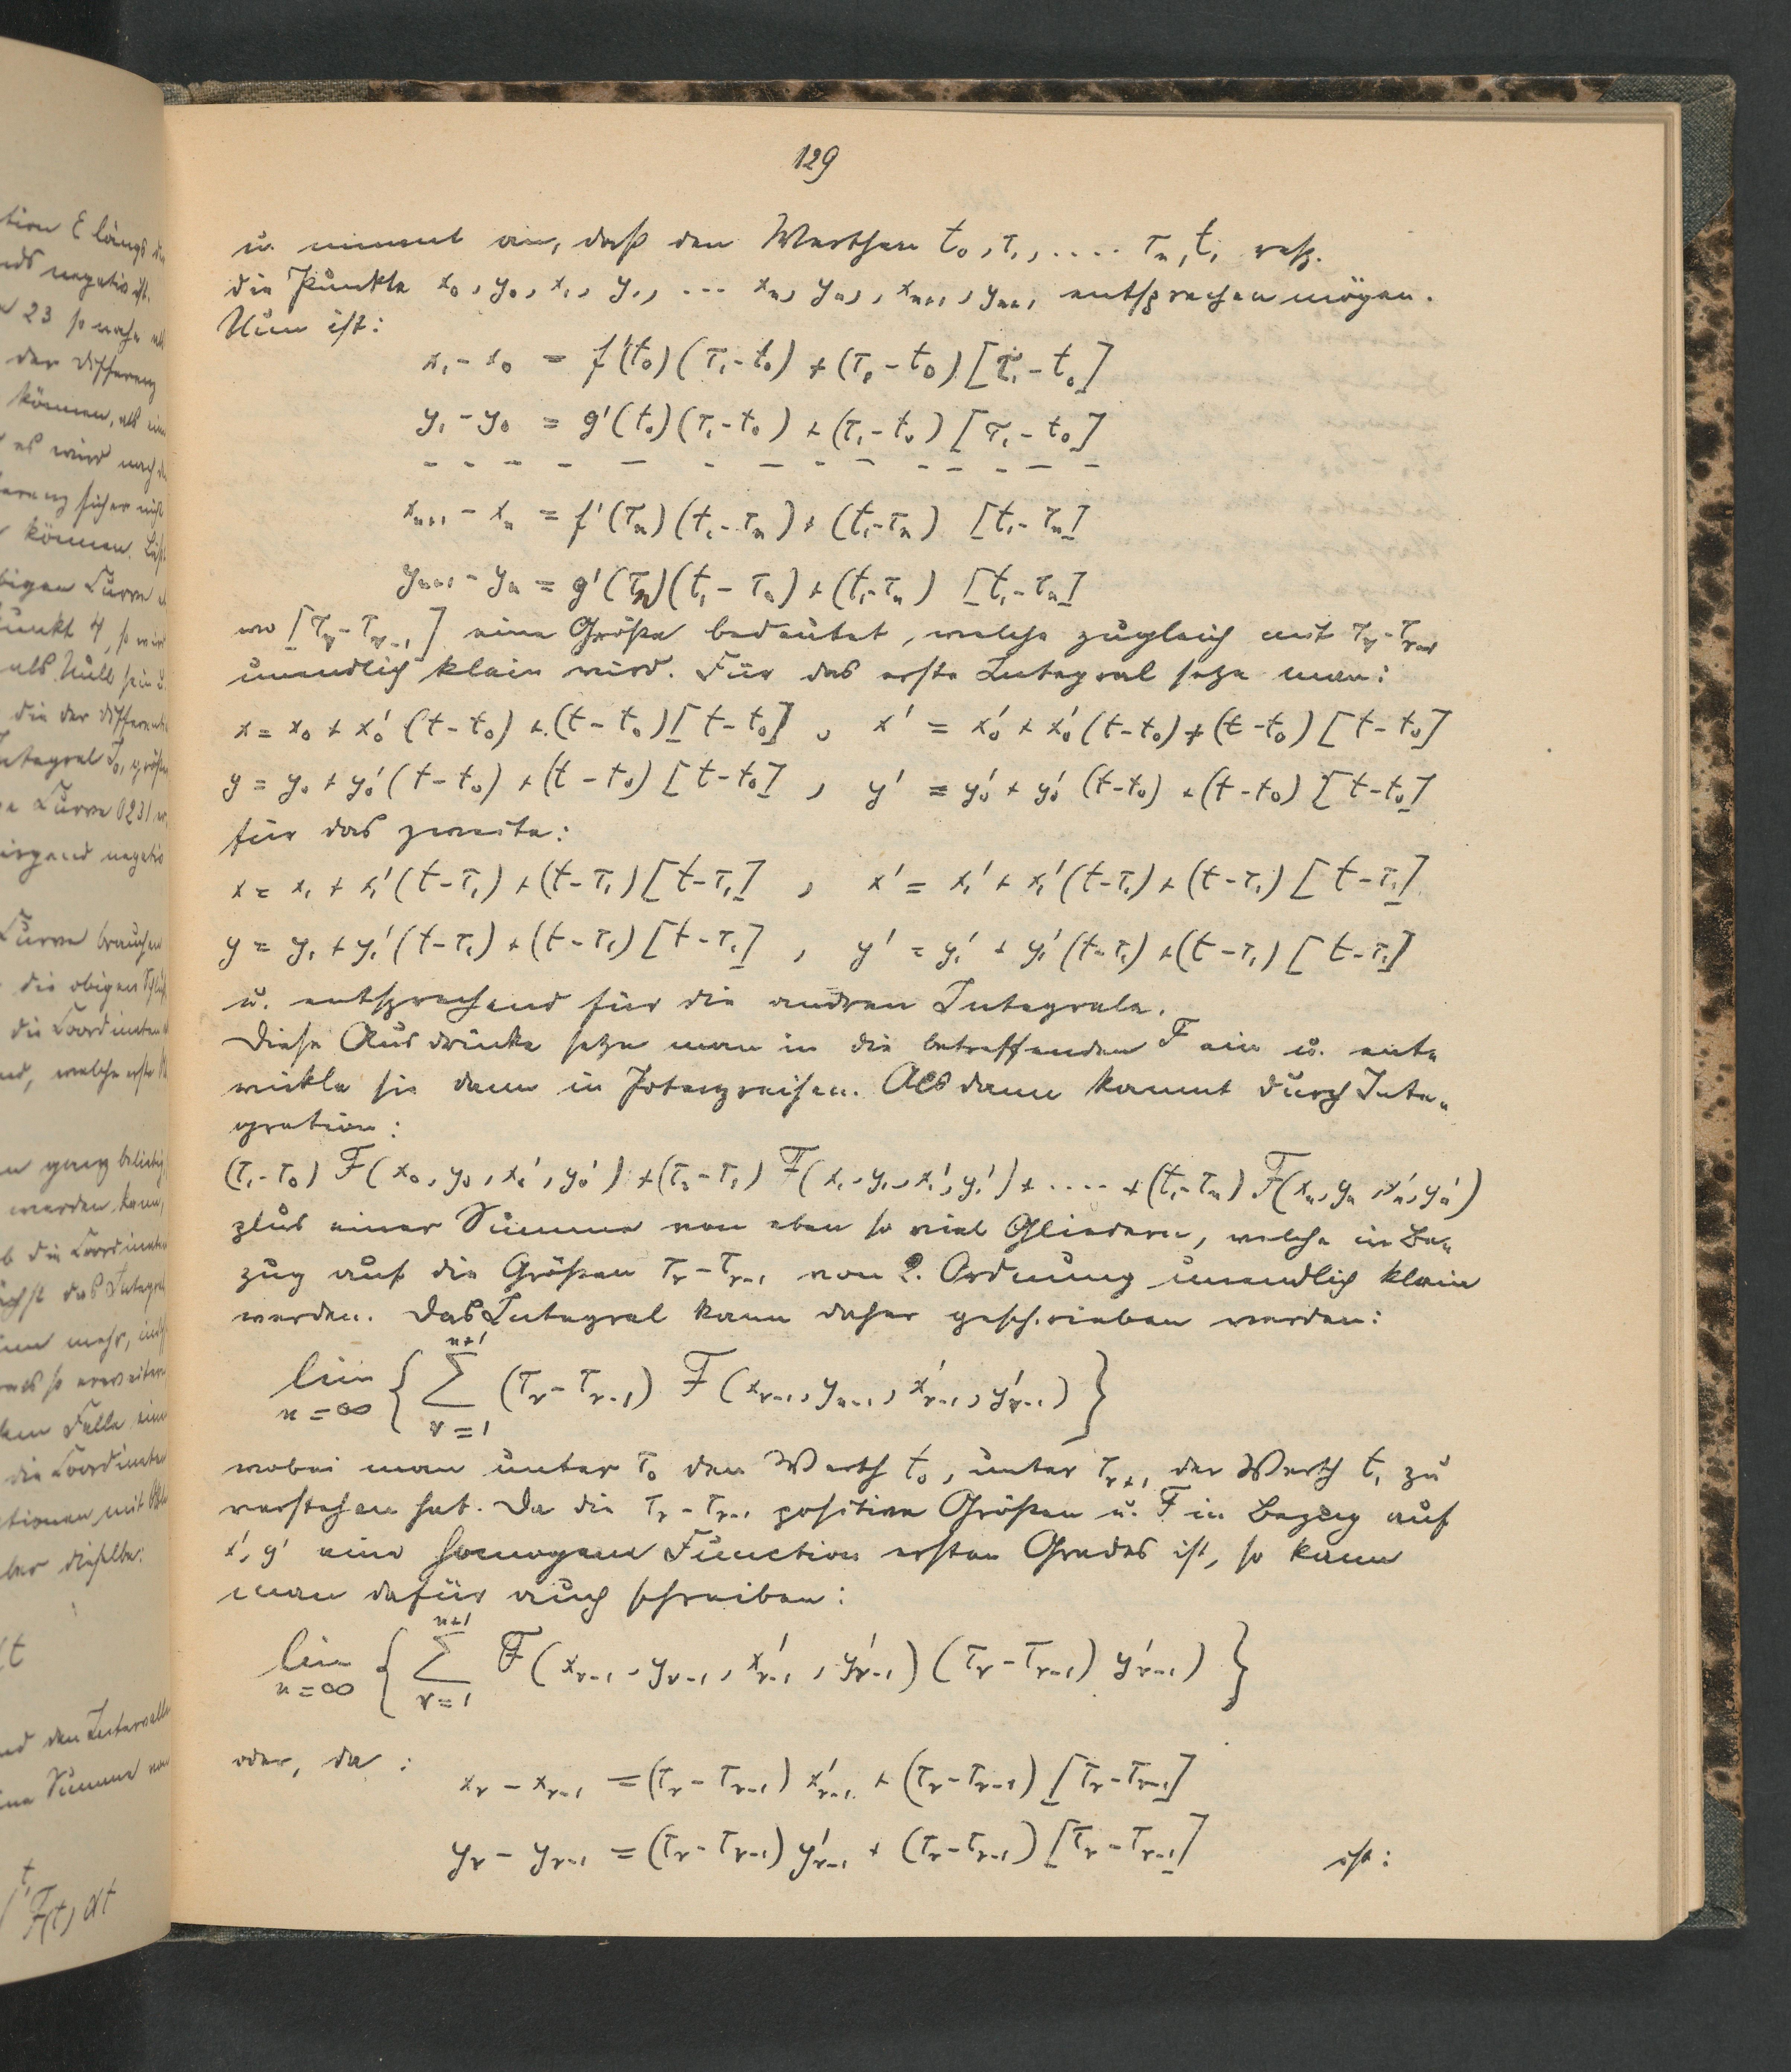 129
u. nimmt an, daß den Werthen t₀, τ₁, .... τₙ, t₁ resp.
die Punkte x₀, y₀, x₁, y₁, ... xₙ, yₙ, xₙ₊₁, yₙ₊₁ entsprechen mögen.
Nun ist:
x₁ - x₀ = f'(t₀)(τ₁-t₀) + (τ₁-t₀)[τ₁-t₀]
y₁ - y₀ = g'(t₀)(τ₁-t₀) + (τ₁-t₀)[τ₁-t₀]
- - - - - - - - - - - - - -
xₙ₊₁ - xₙ = f'(τₙ)(t₁-τₙ) + (t₁-τₙ) [t₁-τₙ]
yₙ₊₁ - yₙ = g'(τₙ)(t₁-τₙ) + (t₁-τₙ) [t₁-τₙ]
wo [τᵥ-τᵥ₋₁] eine Größe bedeutet, welche zugleich mit τᵥ-τᵥ₋₁
unendlich klein wird. Für das erste Integral setze man:
x = x₀ + x₀'(t-t₀) + (t-t₀)[t-t₀] , x' = x₀' + x₀'(t-t₀) + (t-t₀)[t-t₀]
y = y₀ + y₀'(t-t₀) + (t-t₀)[t-t₀] , y' = y₀' + y₀'(t-t₀) + (t-t₀)[t-t₀]
für das zweite:
x = x₁ + x₁'(t-τ₁) + (t-τ₁)[t-τ₁] , x' = x₁' + x₁'(t-τ₁) + (t-τ₁)[t-τ₁]
y = y₁ + y₁'(t-τ₁) + (t-τ₁)[t-τ₁] , y' = y₁' + y₁'(t-τ₁) + (t-τ₁)[t-τ₁]
u. entsprechend für die andren Integrale.
Diese Ausdrücke setze man in die betreffenden F ein u. ent=
wickle sie dann in Potenzreihen. Alsdann kommt durch Inte=
gration:
(τ₁-τ₀) F(x₀, y₀, x₀', y₀') + (τ₂-τ₁) F(x₁, y₁, x₁', y₁') + ..... + (t₁-τₙ) F(xₙ, yₙ, xₙ', yₙ')
plus einer Summe von eben so viel Gliedern, welche in Be=
zug auf die Größen τᵥ-τᵥ₋₁ von 2. Ordnung unendlich klein
werden. Das Integral kann daher geschrieben werden:
lim n=∞ { Σ ᵥ₌₁ ⁿ⁺¹ (τᵥ-τᵥ₋₁) F(xᵥ₋₁, yₙ₋₁, x'ᵥ₋₁, y'ᵥ₋₁) }
wobei man unter τ₀ den Werth t₀, unter τᵥ₊₁ der Werth t₁ zu
verstehen hat. Da die τᵥ-τᵥ₋₁ positive Größen u. F in Bezug auf
x', y' eine homogene Function ersten Grades ist, so kann
man dafür auch schreiben:
lim n=∞ { Σ ᵥ₌₁ ⁿ⁺¹ F(xᵥ₋₁, yᵥ₋₁, x'ᵥ₋₁, y'ᵥ₋₁) (τᵥ-τᵥ₋₁) y'ᵥ₋₁) }
oder, da :
xᵥ - xᵥ₋₁ = (τᵥ-τᵥ₋₁) x'ᵥ₋₁ + (τᵥ-τᵥ₋₁) [τᵥ-τᵥ₋₁]
yᵥ - yᵥ₋₁ = (τᵥ-τᵥ₋₁) y'ᵥ₋₁ + (τᵥ-τᵥ₋₁) [τᵥ-τᵥ₋₁] ist: